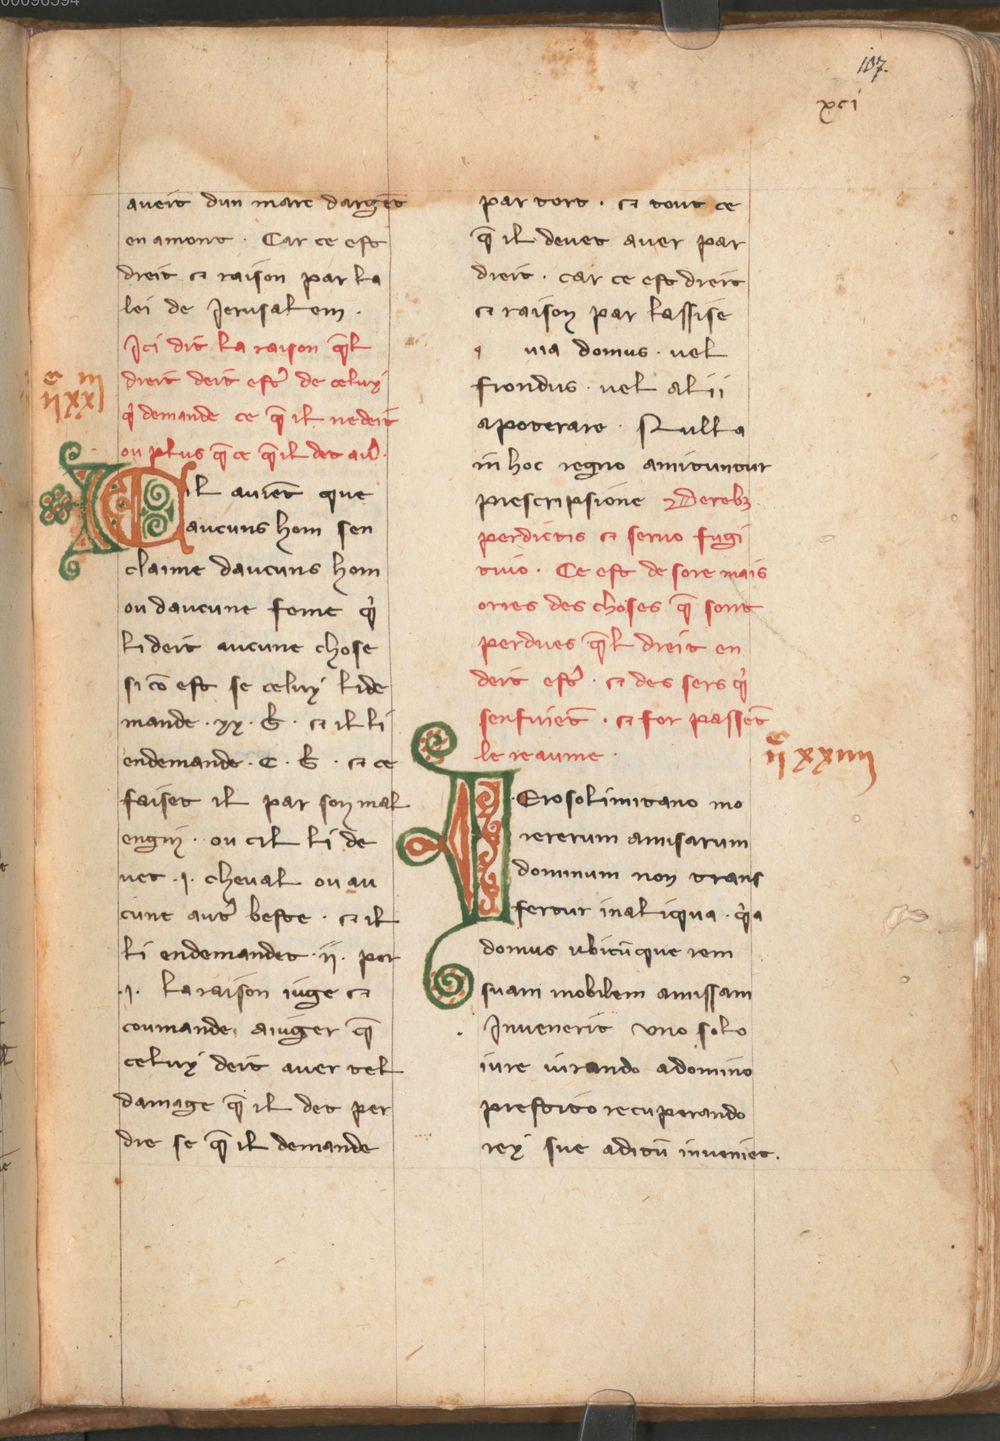 107.
xci
aueit dun marc dargēt
en amont . Car ce est
dreit et raison par la
lei de Jerusalem .
Jci dit la raison q̄l
dreit deit estr̄ de celuy
q̄ demande ce q̄ il ne deit
ou plus q̄ ce q̄ il det au̅
Cil auiēt que
aucuns hom sen
claime daucuns hom
ou daucune feme q̄
li deit aucune chose
si cō est se celuy lide
mande . xx . b̄ . et il li
endemande . C . b̄ . et ce
faiset il par son mal
engin . ou cil li de
uet .i. cheval ou au
cune autr̄ beste . et il
li endemandet .ii. por
.i. la raison iuge et
coumande aiuger q̄
celuy deit auer tel
damage q̄ il det per
dre se q̄ il demande
iixxiii
par tort . et tout ce
q̄ il deuet auer par
dreit . car ce est dreit
et raison par lassise
uia domus . uel
frondus . uel alii
apoterare . Nulla
in hoc regno amituntur
prescripsione De rebȝ
perdictis et seruo fugi
tiuo . Ce est desore mais
ories des choses q̄ sont
perdues q̄l dreit en
deit estr̄ . et des sers q̄
senfuiēt . et for passēt
le reaume .
iixxiiii
IErosolimitano mo
rererum amisarum
dominum non trans
fertur in aliqua . q̄a
domus ubicūque rem
suam mobilem amissam
Jnuenerit uno solo
iure iurando adomino
prestito recuperando
rey sue aditū inueniet .